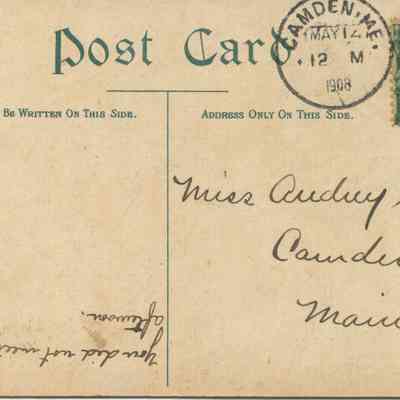 Post Card.
CAMDEN, ME.
MAY 12
12 M
1908
Be Written On This Side.
Address Only On This Side.
Miss Audrey
Camde
Main
you did not
afternoon.